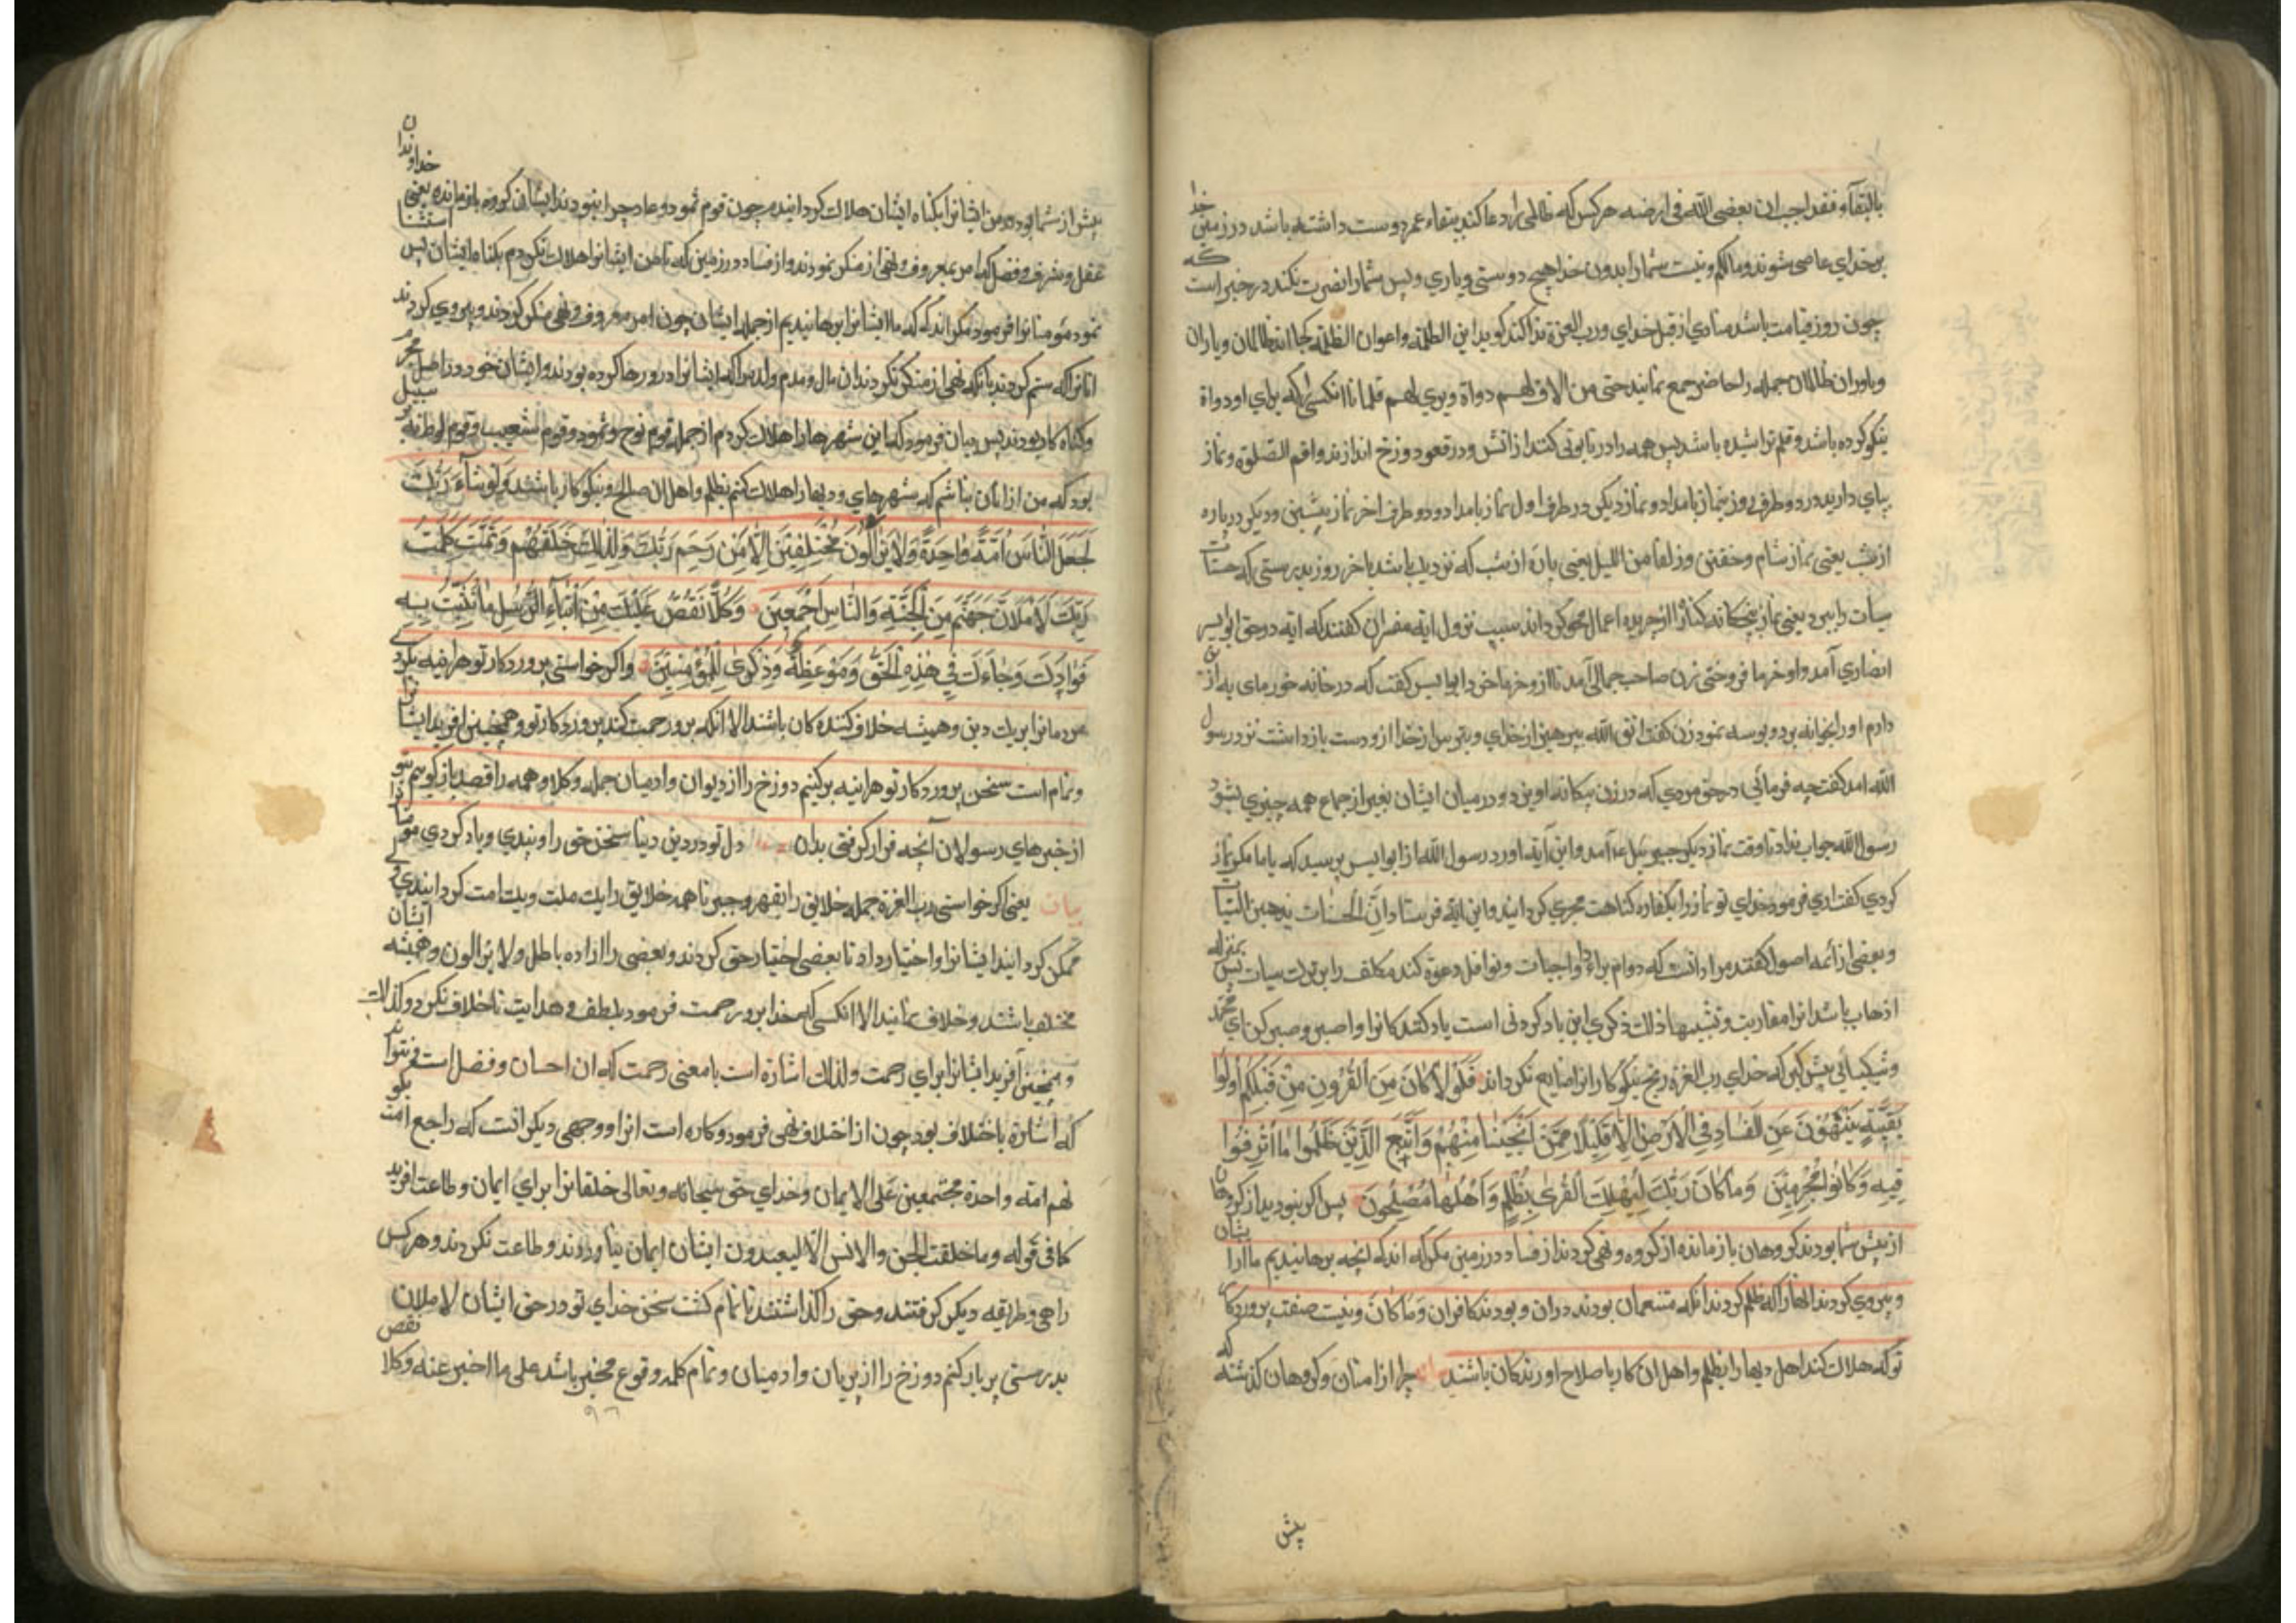 بالبقآء فقد احب ان یعصی الله فی ارضه هر کس که ظالمی را دعا کند ببقاء عمر دوست داشته باشد در زمین خدا
بر خدای عاصی شوند و مالکم و نیست شما را بدون خدا هیچ دوستی و یاری و پس شما را نصرت نکند در خبر است که
چون روز قیامت باشد منادی از قبل خدای و رب العزة ندا کند کوید این الظلمة و اعوان الظلمة کجا اند ظالمان و یاران
و یاوران ظالمان جمله را حاضر جمع نمایند حتی من الاق لهم دواة و بری لهم قلما تا انکسی را که برای او دواة
نیکو کرده باشد و قلم تراشیده باشد پس همه را در تابوتی کنند از اتش و در قعر دوزخ اندازند و اقم الصلوة و نماز
بپای دارید در دو طرف روز نماز بامداد و نماز دیکر در طرف اول نماز بامداد و دو طرف اخر نماز پیشین و دیکر و پاره
از شب یعنی نماز شام و خفتن و زلفا من اللیل یعنی پاره از شب که نزدیک باشد باخر روز بدرستی که حسنات
سیأت را ببرد یعنی نماز پنجکانه کناه را از جریده اعمال محو کرداند سبب نزول ایه مفسران کفتند که ایه در حق ابو الیسر
انصاری آمد و او خرما فروختی زن صاحب جمالی آمد تا ازو خرما خرد ابو الیسر کفت که در خانه خرمای به از
دارم او را بخوانه برد و بوسه نمود زن کفت اتق الله بپرهیز از خدای و بترس از خدا ازو دست باز داشت نزد رسول
الله امد کفت چه فرمائی در حق مردی که در زن بیکانه اویزد و در میان ایشان بغیر از جماع همه چیزی بشود
رسول الله جواب نداد تا وقت نماز دیکر جبرییل ع آمد و این آیه اورد رسول الله از ابو الیسر پرسید که با ما مکر نماز
کردی کفت اری فرمود خدای تو نماز را بکفاره کناهت مجری کردانید و این ایه فرستاد ان الحسنات یذهبن السیأت
و بعضی از ائمه اصول کفتند مراد انست که دوام بر اداء واجبات و نوافل دعوة کند مکلف را بر ترک سیأت پس بمنزله
اذهاب باشد انرا مقاربت و تشبیها ذلک ذکری این یاد کردنی است یاد کنندکانرا و اصبر و صبر کن ای محمد
و شکیبائی پیش کیر که خدای رب العزه رنج نیکوکارانرا ضایع نکرداند فَلَوْلَا کَانَ مِنَ الْقُرُونِ مِنْ قَبْلِکُمْ أُولُوا
بَقِیَّةٍ یَنْهَوْنَ عَنِ الْفَسَادِ فِی الْأَرْضِ إِلَّا قَلِیلًا مِمَّنْ أَنْجَیْنَا مِنْهُمْ وَاتَّبَعَ الَّذِینَ ظَلَمُوا مَا أُتْرِفُوا
فِیهِ وَکَانُوا مُجْرِمِینَ وَمَا کَانَ رَبُّکَ لِیُهْلِکَ الْقُرَی بِظُلْمٍ وَأَهْلُهَا مُصْلِحُونَ پس اکر نبودید از کروهان
از پیش شما بودند کروهان باز مانده از کروه و نهی کردند از فساد در زمین مکر که اندک انچه برهانیدیم ما ازیشان
و پیروی کردند انها را که ظلم کردند انکه متنعمان بودند دران و بودند کافران وَمَا کَانَ و نیست صفت پروردکار
تو که هلاک کند اهل دیها را بظلم و اهل ان کار با صلاح اورندکان باشند چرا از امتان و کروهان کذشته که
پیش
پیش از شما بودند من ایشانرا بکناه ایشان هلاک کردانیدم چون قوم ثمود و عاد چرا نبودند ایشان کروه باز مانده یعنی خداوندان
عقل و شرف و فضل که امر بمعروف و نهی از منکر نمودند و از فساد در زمین که تا من ایشانرا هلاک نکردم بکناه ایشان پس استثنا
نمود مؤمنانرا فرمود مکر اندکی که ما ایشانرا برهانیدیم از جمله ایشان چون امر معروف و نهی منکر کردند و پیروی کردند
انانرا که ستم کردند بانکه نهی از منکر نکردند ان مال و مردم ولدیرا که ایشانرا در ورها کرده بودند و ایشان خود در اصل مجرم
و کناه کار بودند پس بیان فرمود که این شهرها را هلاک کردم از جمله قوم نوح و ثمود و قوم شعیب و قوم لوط نه بر سبیل
بود که من از انان باشم که شهرهای و دیها را هلاک کنم بظلم و اهل ان صالح و نیکوکار باشند وَلَوْ شَآءَ رَبُّکَ
لَجَعَلَ النَّاسَ أُمَّةً وَاحِدَةً وَلَا یَزَالُونَ مُخْتَلِفِینَ إِلَّا مَنْ رَحِمَ رَبُّکَ وَلِذَلِکَ خَلَقَهُمْ وَتَمَّتْ کَلِمَتُ
رَبِّکَ لَأَمْلَأَنَّ جَهَنَّمَ مِنَ الْجِنَّةِ وَالنَّاسِ أَجْمَعِینَ وَکُلًّا نَقُصُّ عَلَیْکَ مِنْ أَنْبَآءِ الرُّسُلِ مَا نُثَبِّتُ بِهِ
فُؤَادَکَ وَجَاءَکَ فِی هَذِهِ الْحَقُّ وَمَوْعِظَةٌ وَذِکْرَی لِلْمُؤْمِنِینَ و اکر خواستی پروردکار تو هراینه بکردی
مردمانرا بر یک دین و همیشه خلاف کننده کان باشند الا انکه برو رحمت کند پروردکار تو و همچنین افرید ایشانرا
و تمام است سخن پروردکار تو هراینه پر کنیم دوزخ را از دیوان و ادمیان جمله و کلا و همه را قصه باز کوییم بتو
از خبرهای رسولان آنچه قرار کرفتی بدان دل تو در دین دنیا سخن حق را و پندی و یاد کردی مؤمنانرا
بیان یعنی اکر خواستی رب العزة جمله خلایق را بقهر و جبر تا همه خلایق را یک ملت و یک امت کردانیدی ولی
ممکن کردانید ایشانرا و اختیار داد تا بعضی اختیار حق کردند و بعضی را اراده باطل ولا یزالون و همیشه ایشان
مختلف باشند و خلاف نمانید الا انکسی که خدا برو رحمت فرمود بلطف و هدایت تا خلاف نکرد و کذلک
و همچنین آفرید ایشانرا برای رحمت و لذلک اشارة است بامعنی رحمت که ان احسان و فضل است و نتوان
که اشارة باختلاف بود چون از اختلاف نهی فرمود و کاره است انرا و وجهی دیکر انست که راجع است بکو
نهم امة واحدة مجتمعین علی الایمان و خدای حق سبحانه و تعالی خلقانرا برای ایمان و طاعت افرید
کما فی قوله و ما خلقت الجن و الانس الا لیعبدون ایشان ایمان نیاوردند و طاعت نکردند و هر کس
راهی و طریقه دیکر کرفتند و حق را کذاشتند تا تمام کشت سخن خدای تو در حق ایشان لاملان
بدرستی پر باز کنم دوزخ را از پریان و ادمیان و تمام کلمه وقوع مخبر باشد علی ما اخبر عنه و کلا نقص
۹۶